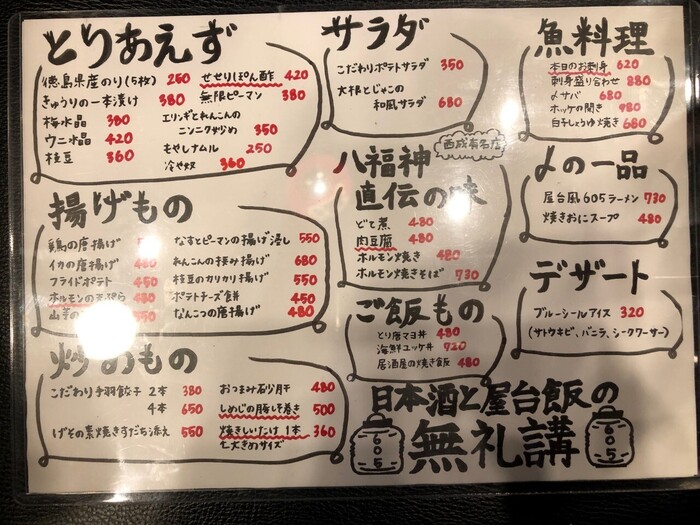 とりあえず
徳島県産のり(5枚) 250
きゅうりの一本漬け 380
梅水晶 380
ウニ水晶 420
枝豆 360
せせりぽん酢 420
無限ピーマン 380
エリンギとれんこんの
ニンニク炒め 350
もやしナムル 250
冷や奴 360
サラダ
こだわりポテトサラダ 350
大根とじゃこの
和風サラダ 680
魚料理
本日のお刺身 620
刺身盛り合わせ 880
〆サバ 680
ホッケの開き 980
白子しょうゆ焼き 680
揚げもの
鶏の唐揚げ 550
イカの唐揚げ 480
フライドポテト 450
ホルモンの天ぷら
山芋の 550
なすとピーマンの揚げ浸し 550
れんこんの挟み揚げ 680
枝豆のカリカリ揚げ 550
ポテトチーズ餅 450
なんこつの唐揚げ 480
西成有名店
八福神
直伝の味
どて煮 480
肉豆腐 480
ホルモン焼き 480
ホルモン焼きそば 730
〆の一品
屋台風605ラーメン 730
焼きおにスープ 480
ご飯もの
とり唐マヨ丼 480
海鮮ユッケ丼 720
居酒屋の焼き飯 480
デザート
ブルーシールアイス 320
(サトウキビ、バニラ、シークワーサー)
炒めもの
こだわり手羽餃子 2本 380
4本 650
げその素焼きすだち添え 550
おつまみ砂肝 480
しめじの豚しそ巻き 500
焼きしいたけ 1本 360
大きめサイズ
日本酒と屋台飯の
無礼講
605
605